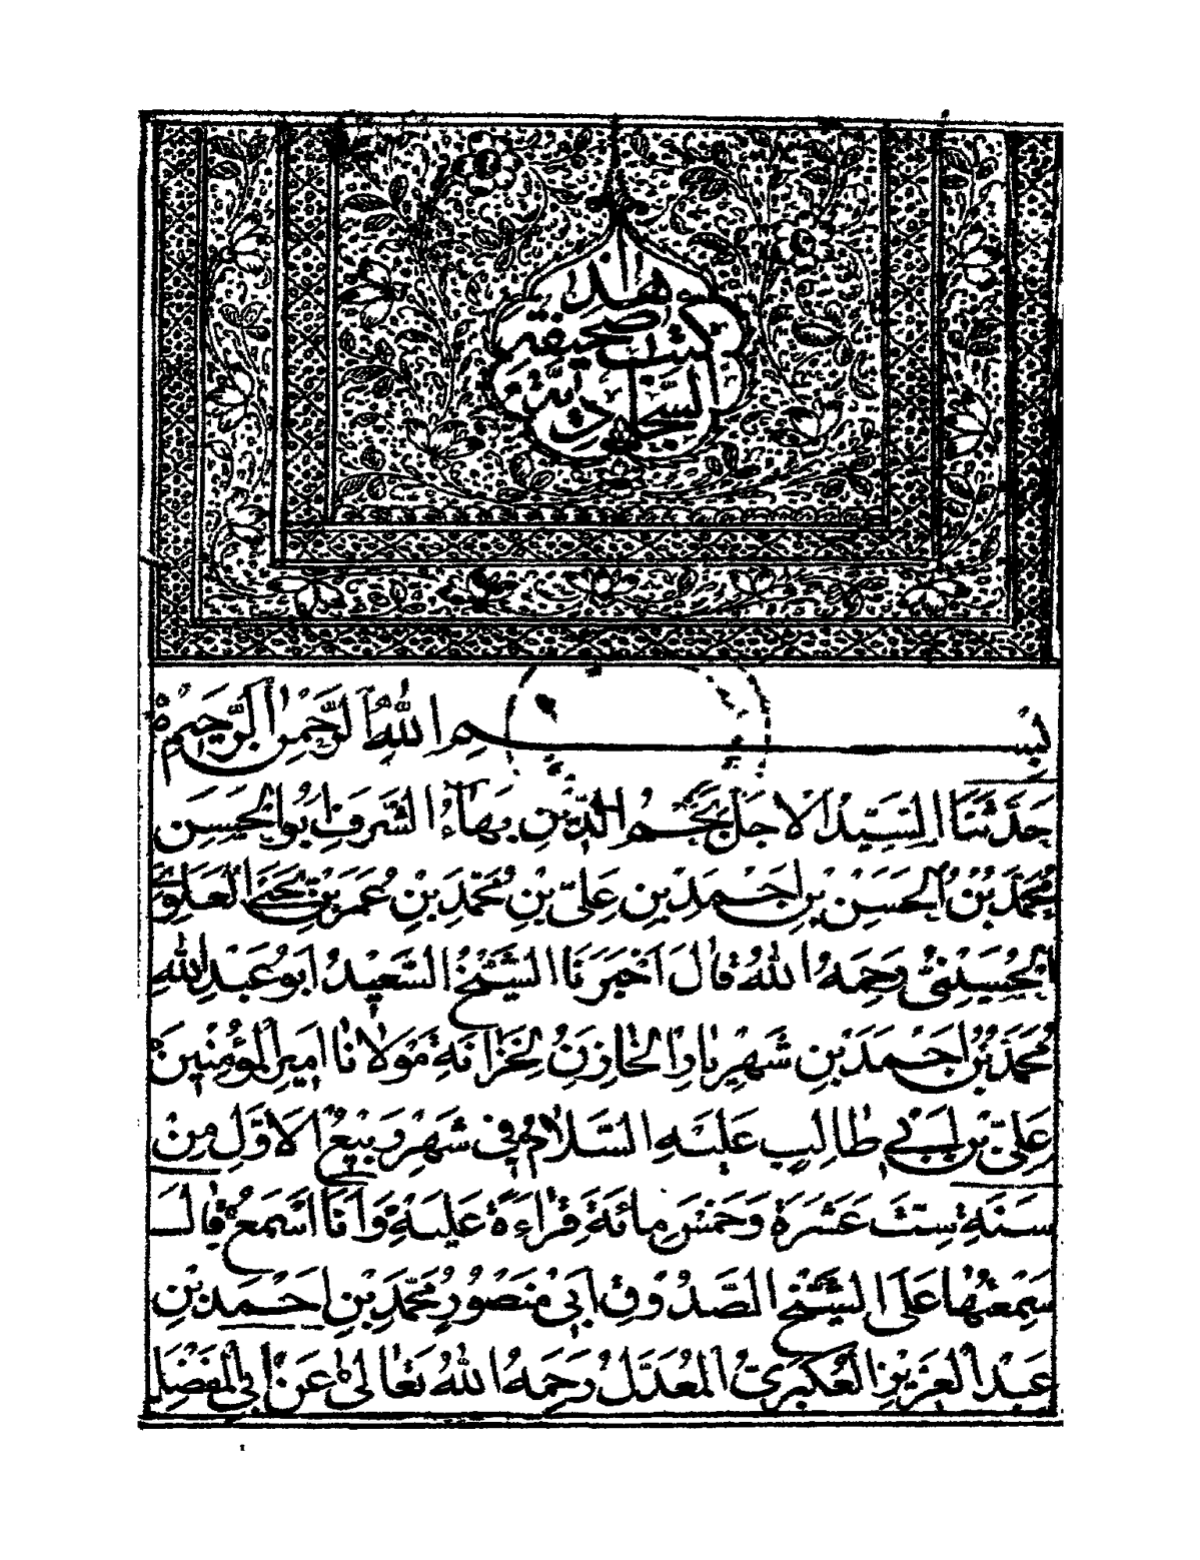 هذا
كتاب صحيفه
السجادية
بِسْمِ اللهِ الرَّحْمٰنِ الرَّحِيمِ
حَدَّثَنَا السَّيِّدُ الْاَجَلُّ نَجْمُ الدِّيْنِ بَهَاءُ الشَّرَفِ اَبُو الْحَسَنِ
مُحَمَّدُ بْنُ الْحَسَنِ بْنِ اَحْمَدَ بْنِ عَلِيِّ بْنِ مُحَمَّدِ بْنِ عُمَرَ بْنِ يَحْيَى الْعَلَوِيُّ
الْحُسَيْنِيُّ رَحِمَهُ اللهُ قَالَ اَخْبَرَنَا الشَّيْخُ السَّعِيْدُ اَبُو عَبْدِ اللهِ
مُحَمَّدُ بْنُ اَحْمَدَ بْنِ شَهْرِيَارَ الْخَازِنُ لِخَزَانَةِ مَوْلَانَا اَمِيرِ الْمُؤْمِنِينَ
عَلِيِّ بْنِ اَبِي طَالِبٍ عَلَيْهِ السَّلَامُ فِي شَهْرِ رَبِيْعِ الْاَوَّلِ مِنْ
سَنَةِ سِتَّ عَشَرَةَ وَخَمْسِ مِائَةَ قِرَاءَةً عَلَيْهِ وَاَنَا اَسْمَعُ قَالَ
سَمِعْتُهَا عَلَى الشَّيْخِ الصَّدُوقِ اَبِي مَنْصُورٍ مُحَمَّدِ بْنِ اَحْمَدَ بْنِ
عَبْدِ الْعَزِيزِ الْعُكْبَرِيِّ الْمُعَدَّلِ رَحِمَهُ اللهُ تَعَالىٰ عَنْ اَبِي الْمُفَضَّلِ